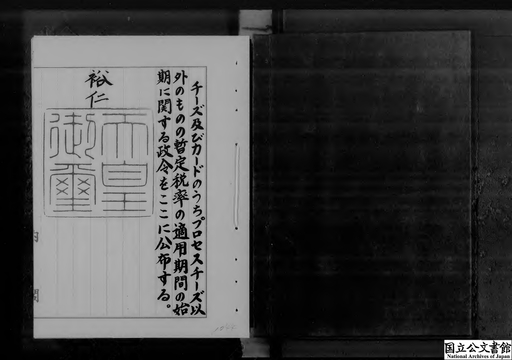 チーズ及びカードのうちプロセスチーズ以
外のものの暫定税率の適用期間の始
期に関する政令をここに公布する。
裕仁
天皇
御璽
国立公文書館
National Archives of Japan